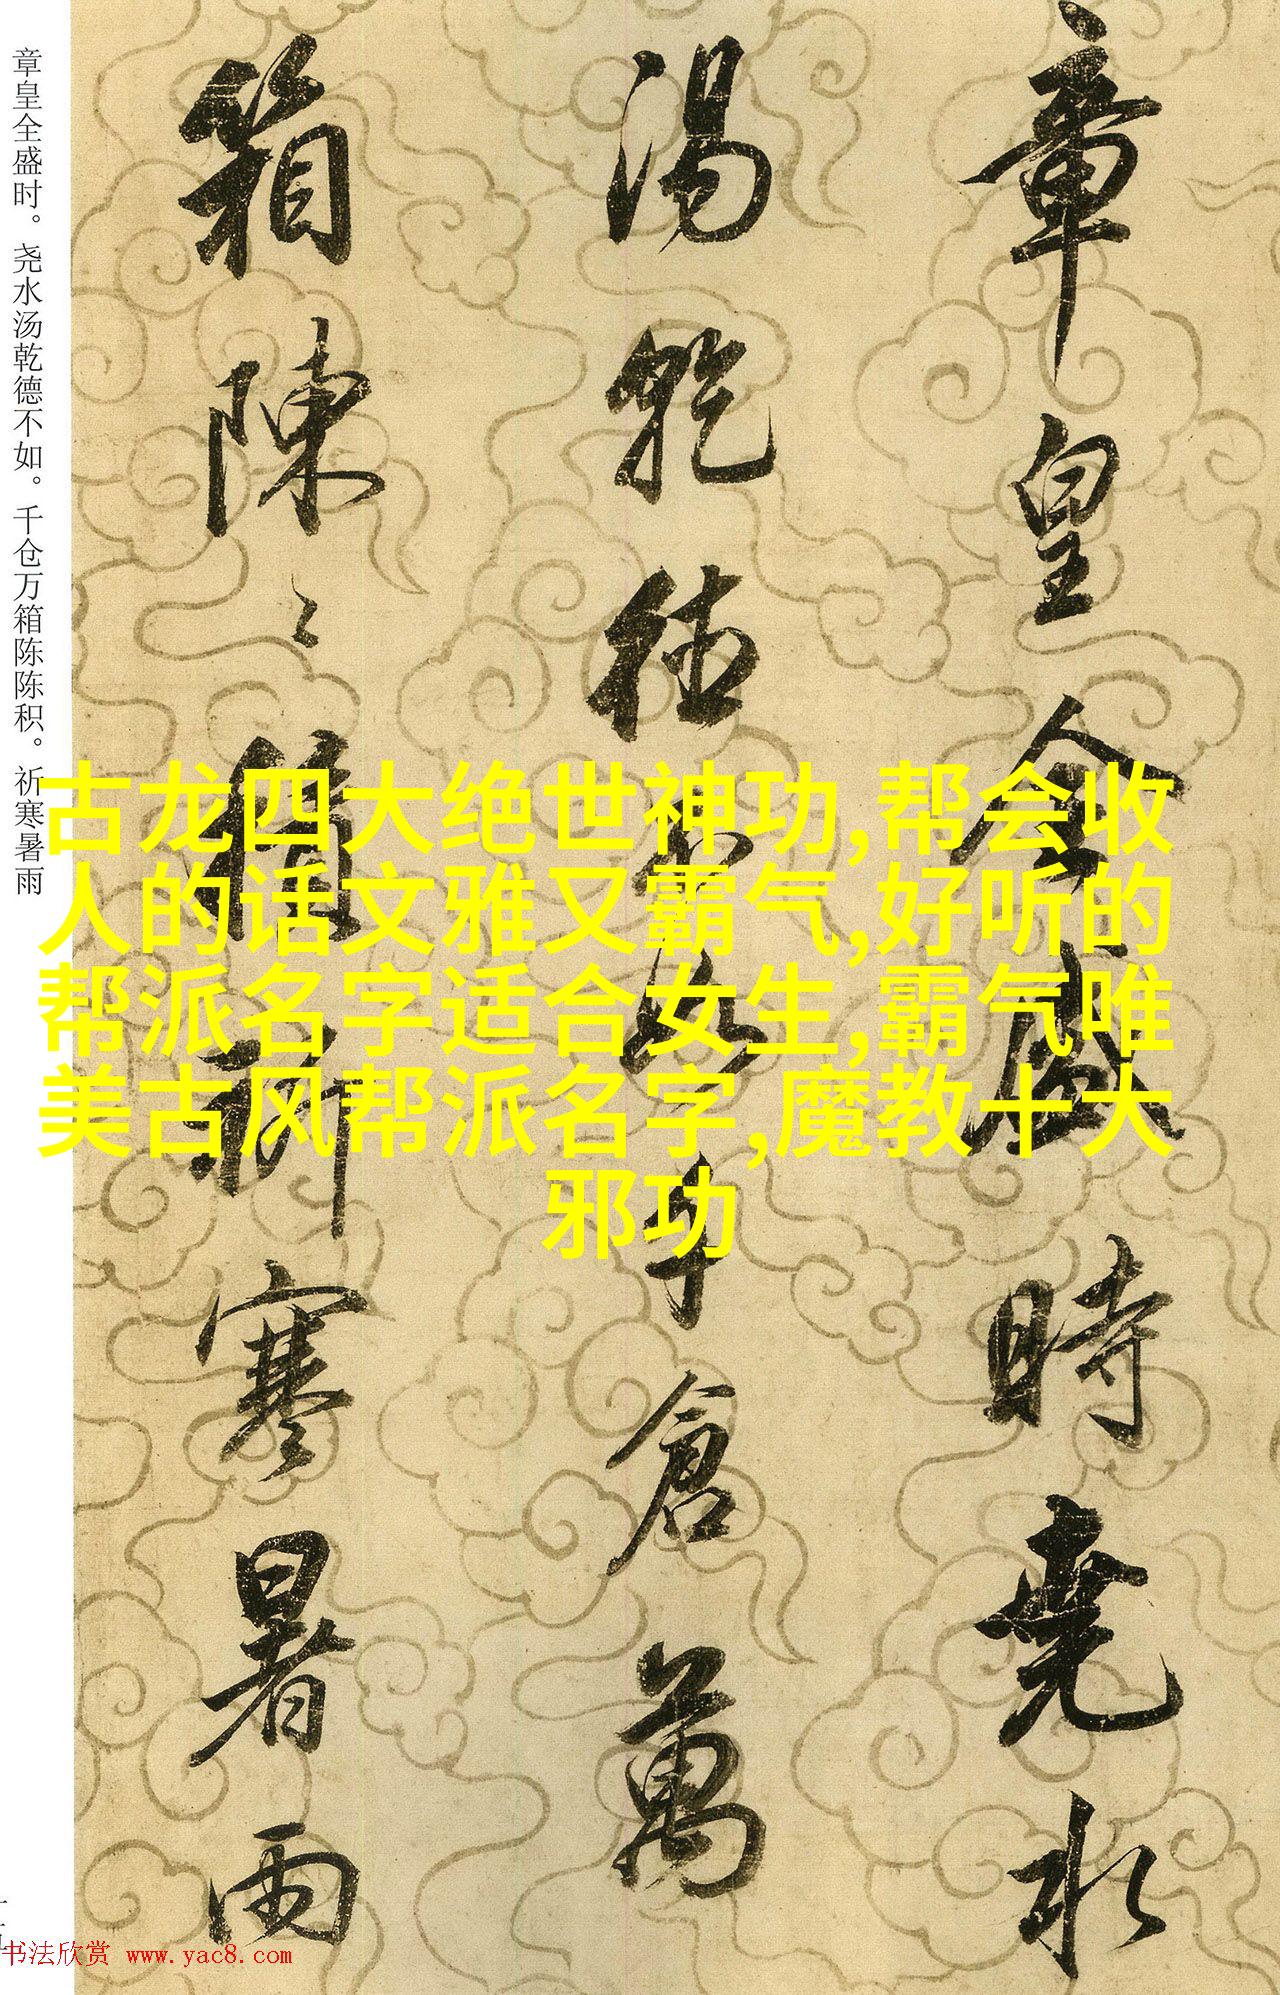 章皇全盛時堯水
湯乾德不如千倉萬
箱陳〻積祈寒暑雨
章皇全盛时。尧水汤乾德不如。千仓万箱陈陈积。祈寒暑雨
古龙四大绝世神功,帮会收
人的话文雅又霸气,好听的
帮派名字适合女生,霸气唯
美古风帮派名字,魔教十大
邪功
书法欣赏 www.yac8.com